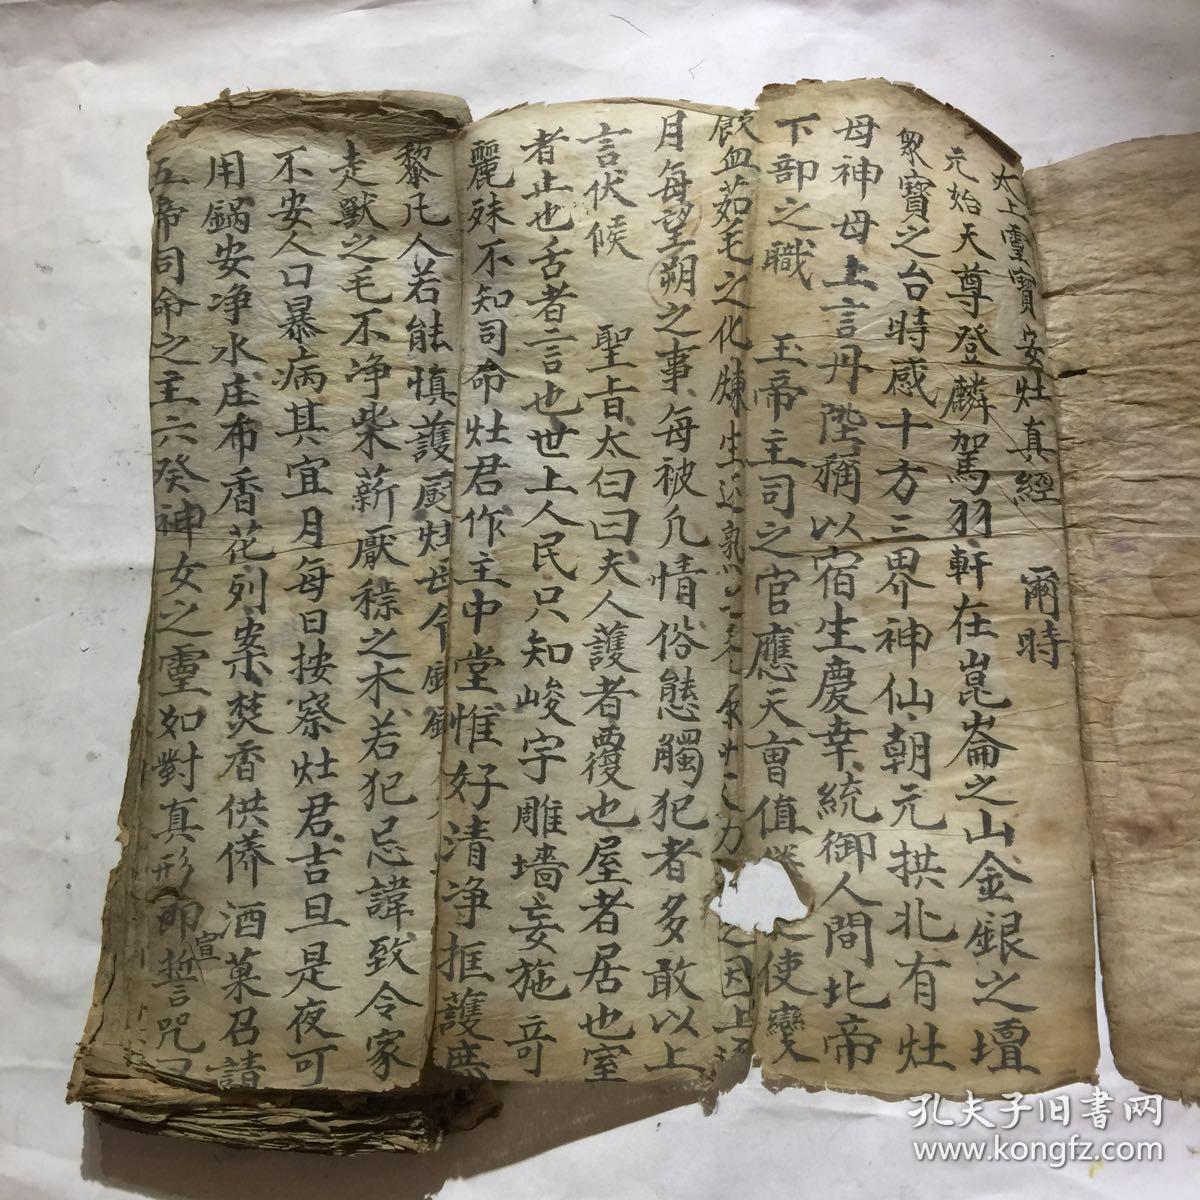 太上靈寳安灶真經　爾時
元始天尊登麟駕羽軒在崑崙之山金銀之壇
衆寳之台時感十方三界神仙朝元拱北有灶
母神母上言丹陛稱以宿生慶幸統御人間北帝
下部之職　玉帝主司之官應天曹值　使變
飲血茹毛之化煉生　之因上
月每望朔之事每被凢情俗態觸犯者多敢以上
言伏候　聖旨太曰曰夫人護者覆也屋者居也室
者止也舌者言也世上人民只知峻宇雕墻妄施竒
麗殊不知司命灶君作主中堂惟好清净框護庶
黎凡人若能慎護厨灶
走獸之毛不净柴薪厭穢之木若犯忌諱致令家
不安人口暴病其宜月每日按察灶君吉旦是夜可
用鍋安净水庄布香花列案焚香供俻酒菓召請
五帝司命之主六癸神女之靈如對真形即宣誓咒
孔夫子旧书网
www.kongfz.com